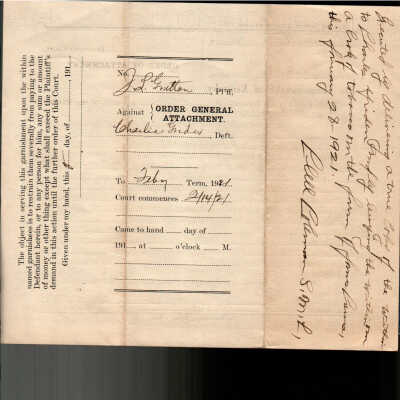 The object in serving this garnishment upon the within
named garnishees is to restrain them severally from paying to the
Defendant herein, or to any person for him, any sum or amount
of money or other thing except what shall exceed the Plaintiff's
demand in this action until the further order of this Court.
Given under my hand, this day of, 191
No.
J. L. Gritton, Pltff,
Against { ORDER GENERAL
ATTACHMENT.
Charlie Deft.
To Feby Term, 1921.
Court commences 2/14/21
Came to hand day of
191 at o'clock M.
Executed by delivering a true copy of the within
to Charlie
a crop of tobacco on the farm of
this January 28-1921.
Coleman S.M.C.